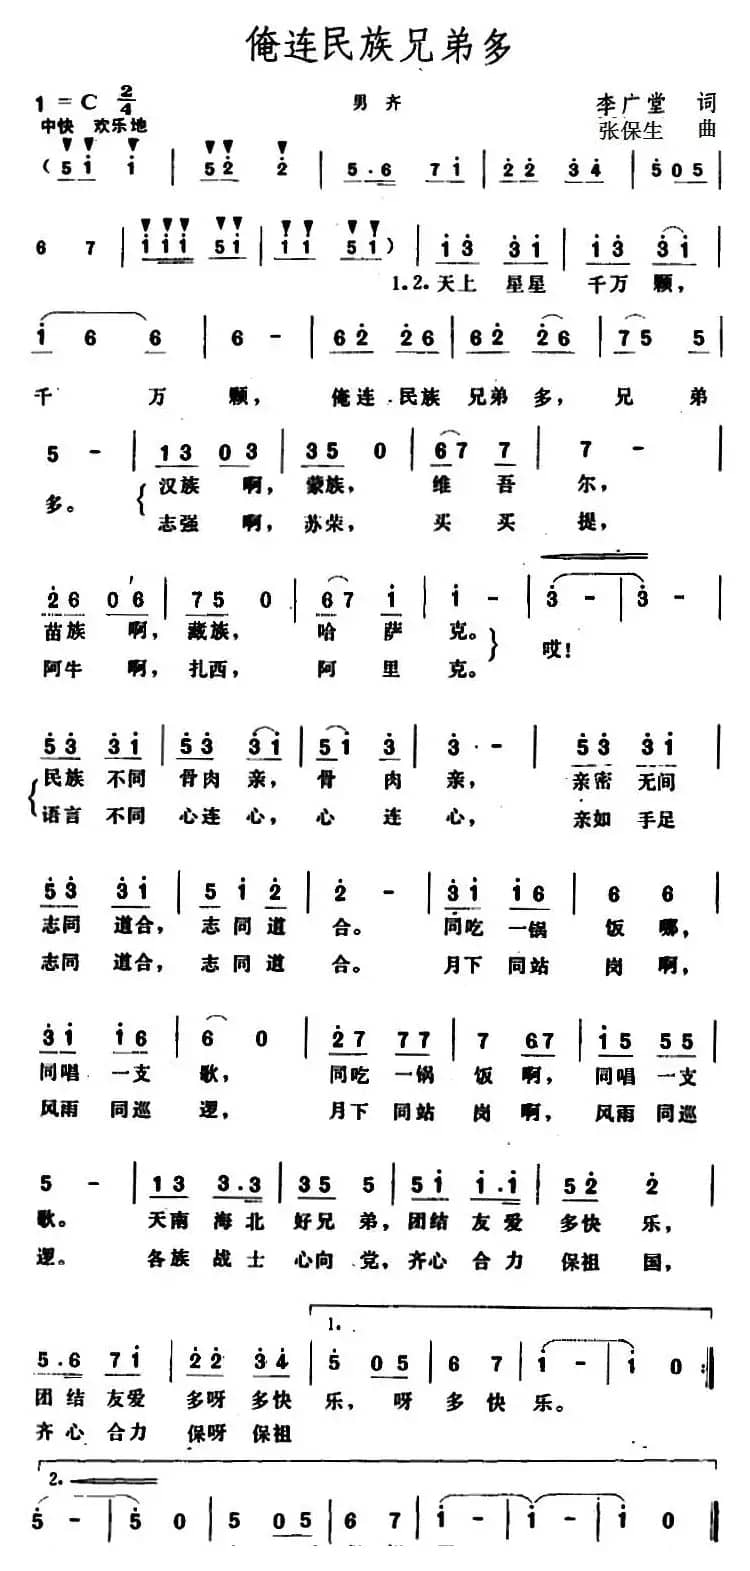 俺连民族兄弟多
1=C 2/4 男齐 李广堂 词
中快 欢乐地 张保生 曲
(5 1 1 | 5 2 2 | 5·6 7 1 | 2 2 3 4 | 5 0 5 |
6 7 | 1 1 1 5 1 | 1 1 5 1) | 1 3 3 1 | 1 3 3 1 |
1.2.天上 星星 千万 颗,
1 6 6 | 6 - | 6 2 2 6 | 6 2 2 6 | 7 5 5 |
千 万 颗, 俺连 民族 兄弟 多, 兄 弟
5 - | 1 3 0 3 | 3 5 0 | 6 7 7 | 7 - |
多。 汉族 啊, 蒙族, 维 吾 尔,
志强 啊, 苏荣, 买 买 提,
2 6 0 6 | 7 5 0 | 6 7 1 | 1 - | 3 - | 3 - |
苗族 啊, 藏族, 哈 萨 克。 哎!
阿牛 啊, 扎西, 阿 里 克。
5 3 3 1 | 5 3 3 1 | 5 1 3 | 3 · - | 5 3 3 1 |
民族 不同 骨肉 亲, 骨 肉 亲, 亲密 无间
语言 不同 心连 心, 心 连 心, 亲如 手足
5 3 3 1 | 5 1 2 | 2 - | 3 1 1 6 | 6 6 |
志同 道合, 志同道 合。 同吃 一锅 饭 哪,
志同 道合, 志同道 合。 月下 同站 岗 啊,
3 1 1 6 | 6 0 | 2 7 7 7 | 7 6 7 | 1 5 5 5 |
同唱 一支 歌, 同吃 一锅 饭 啊, 同唱 一支
风雨 同巡 逻, 月下 同站 岗 啊, 风雨 同巡
5 - | 1 3 3·3 | 3 5 5 | 5 1 1·1 | 5 2 2 |
歌。 天南 海北 好兄 弟, 团结 友爱 多快 乐,
逻。 各族 战士 心向 党, 齐心 合力 保祖 国,
1.
5·6 7 1 | 2 2 3 4 | 5 0 5 | 6 7 | 1 - | 1 0 :||
团结 友爱 多呀 多快 乐, 呀 多 快 乐。
齐心 合力 保呀 保祖
2.
5 - | 5 0 | 5 0 5 | 6 7 | 1 - | 1 - | 1 0 ||